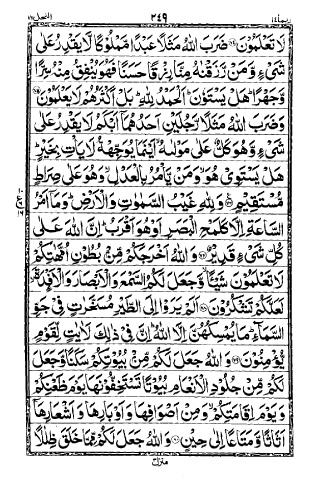 النحل ١٦ ٢٤٩ ربما ١٤
لَا تَعْلَمُوْنَ ﴿۷۴﴾ ضَرَبَ اللّٰهُ مَثَلًا عَبْدًا مَّمْلُوْكًا لَّا يَقْدِرُ عَلٰى
شَىْءٍ وَّمَنْ رَّزَقْنٰهُ مِنَّا رِزْقًا حَسَنًا فَهُوَ يُنْفِقُ مِنْهُ سِرًّا
وَّجَهْرًا ؕ هَلْ يَسْتَوٗنَ ؕ اَلْحَمْدُ لِلّٰهِ ؕ بَلْ اَكْثَرُهُمْ لَا يَعْلَمُوْنَ ﴿۷۵﴾
وَضَرَبَ اللّٰهُ مَثَلًا رَّجُلَيْنِ اَحَدُهُمَاۤ اَبْكَمُ لَا يَقْدِرُ عَلٰى
شَىْءٍ وَّهُوَ كَلٌّ عَلٰى مَوْلٰىهُ ۙ اَيْنَمَا يُوَجِّهْهُّ لَا يَاْتِ بِخَيْرٍ ؕ
هَلْ يَسْتَوِىْ هُوَ ۙ وَمَنْ يَّاْمُرُ بِالْعَدْلِ ۙ وَهُوَ عَلٰى صِرَاطٍ
مُّسْتَقِيْمٍ ﴿۷۶﴾ وَلِلّٰهِ غَيْبُ السَّمٰوٰتِ وَالْاَرْضِ ؕ وَمَاۤ اَمْرُ
السَّاعَةِ اِلَّا كَلَمْحِ الْبَصَرِ اَوْ هُوَ اَقْرَبُ ؕ اِنَّ اللّٰهَ عَلٰى
كُلِّ شَىْءٍ قَدِيْرٌ ﴿۷۷﴾ وَاللّٰهُ اَخْرَجَكُمْ مِّنْۢ بُطُوْنِ اُمَّهٰتِكُمْ
لَا تَعْلَمُوْنَ شَيْئًا ۙ وَّجَعَلَ لَكُمُ السَّمْعَ وَالْاَبْصَارَ وَالْاَفْـِٕدَةَ ۙ
لَعَلَّكُمْ تَشْكُرُوْنَ ﴿۷۸﴾ اَلَمْ يَرَوْا اِلَى الطَّيْرِ مُسَخَّرٰتٍ فِىْ جَوِّ
السَّمَآءِ ؕ مَا يُمْسِكُهُنَّ اِلَّا اللّٰهُ ؕ اِنَّ فِىْ ذٰلِكَ لَاٰيٰتٍ لِّقَوْمٍ
يُّؤْمِنُوْنَ ﴿۷۹﴾ وَاللّٰهُ جَعَلَ لَكُمْ مِّنْۢ بُيُوْتِكُمْ سَكَنًا وَّجَعَلَ
لَكُمْ مِّنْ جُلُوْدِ الْاَنْعَامِ بُيُوْتًا تَسْتَخِفُّوْنَهَا يَوْمَ ظَعْنِكُمْ
وَيَوْمَ اِقَامَتِكُمْ ۙ وَمِنْ اَصْوَافِهَا وَاَوْبَارِهَا وَاَشْعَارِهَاۤ
اَثَاثًا وَّمَتَاعًا اِلٰى حِيْنٍ ﴿۸۰﴾ وَاللّٰهُ جَعَلَ لَكُمْ مِّمَّا خَلَقَ ظِلٰلًا
۱۰
ع
۱۶
منزل ۳